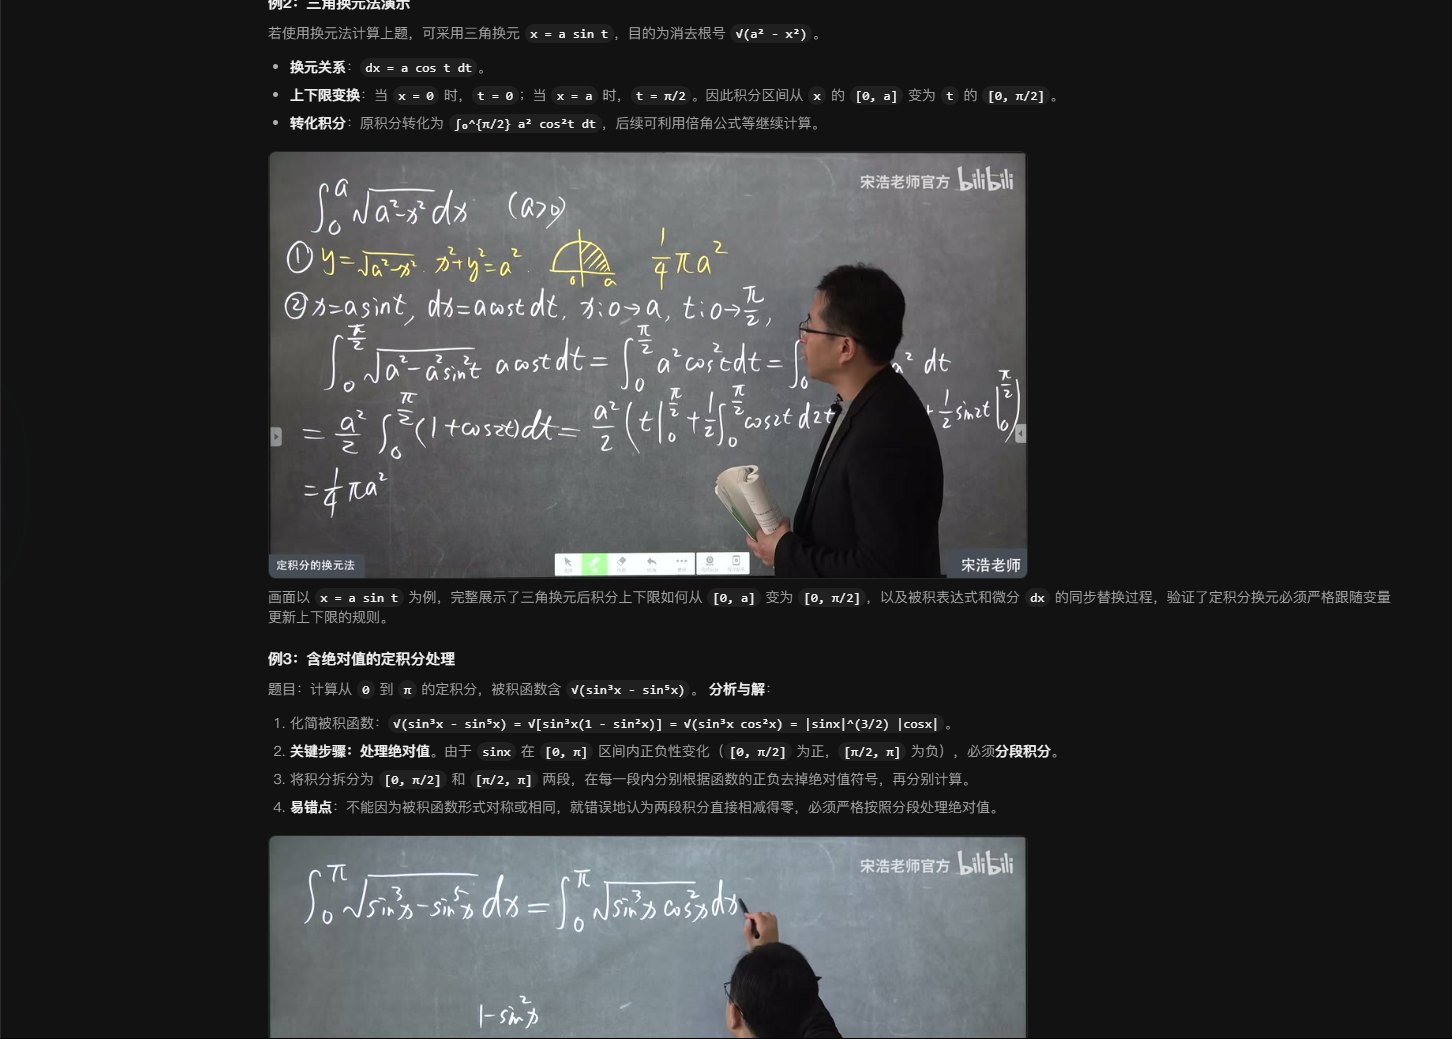 例2：三角换元法演示
若使用换元法计算上题，可采用三角换元 x = a sin t，目的为消去根号 √(a² - x²)。
• 换元关系：dx = a cos t dt。
• 上下限变换：当 x = 0 时，t = 0；当 x = a 时，t = π/2。因此积分区间从 x 的 [0, a] 变为 t 的 [0, π/2]。
• 转化积分：原积分转化为 ∫₀^{π/2} a² cos²t dt，后续可利用倍角公式等继续计算。
宋浩老师官方 bilibili
∫₀^a √(a²-x²) dx (a>0)
① y=√(a²-x²). x²+y²=a². 0 a 1/4 πa²
② x=asint, dx=acostdt, x:0→a, t:0→π/2,
∫₀^{π/2} √(a²-a²sin²t) acostdt = ∫₀^{π/2} a²cos²tdt = ∫₀ a² dt
= a²/2 ∫₀^{π/2} (1+cos2t)dt = a²/2 (t|₀^{π/2} + 1/2 ∫₀^{π/2} cos2t d2t + 1/2 sin2t|₀^{π/2})
= 1/4 πa²
定积分的换元法
宋浩老师
画面以 x = a sin t 为例，完整展示了三角换元后积分上下限如何从 [0, a] 变为 [0, π/2]，以及被积表达式和微分 dx 的同步替换过程，验证了定积分换元必须严格跟随变量
更新上下限的规则。
例3：含绝对值的定积分处理
题目：计算从 0 到 π 的定积分，被积函数含 √(sin³x - sin⁵x)。分析与解：
1. 化简被积函数：√(sin³x - sin⁵x) = √[sin³x(1 - sin²x)] = √(sin³x cos²x) = |sinx|^(3/2) |cosx|。
2. 关键步骤：处理绝对值。由于 sinx 在 [0, π] 区间内正负性变化（[0, π/2] 为正，[π/2, π] 为负），必须分段积分。
3. 将积分拆分为 [0, π/2] 和 [π/2, π] 两段，在每一段内分别根据函数的正负去掉绝对值符号，再分别计算。
4. 易错点：不能因为被积函数形式对称或相同，就错误地认为两段积分直接相减得零，必须严格按照分段处理绝对值。
宋浩老师官方 bilibili
∫₀^π √(sin³x-sin⁵x) dx = ∫₀^π √(sin³x cos²x) dx
1-sin²x